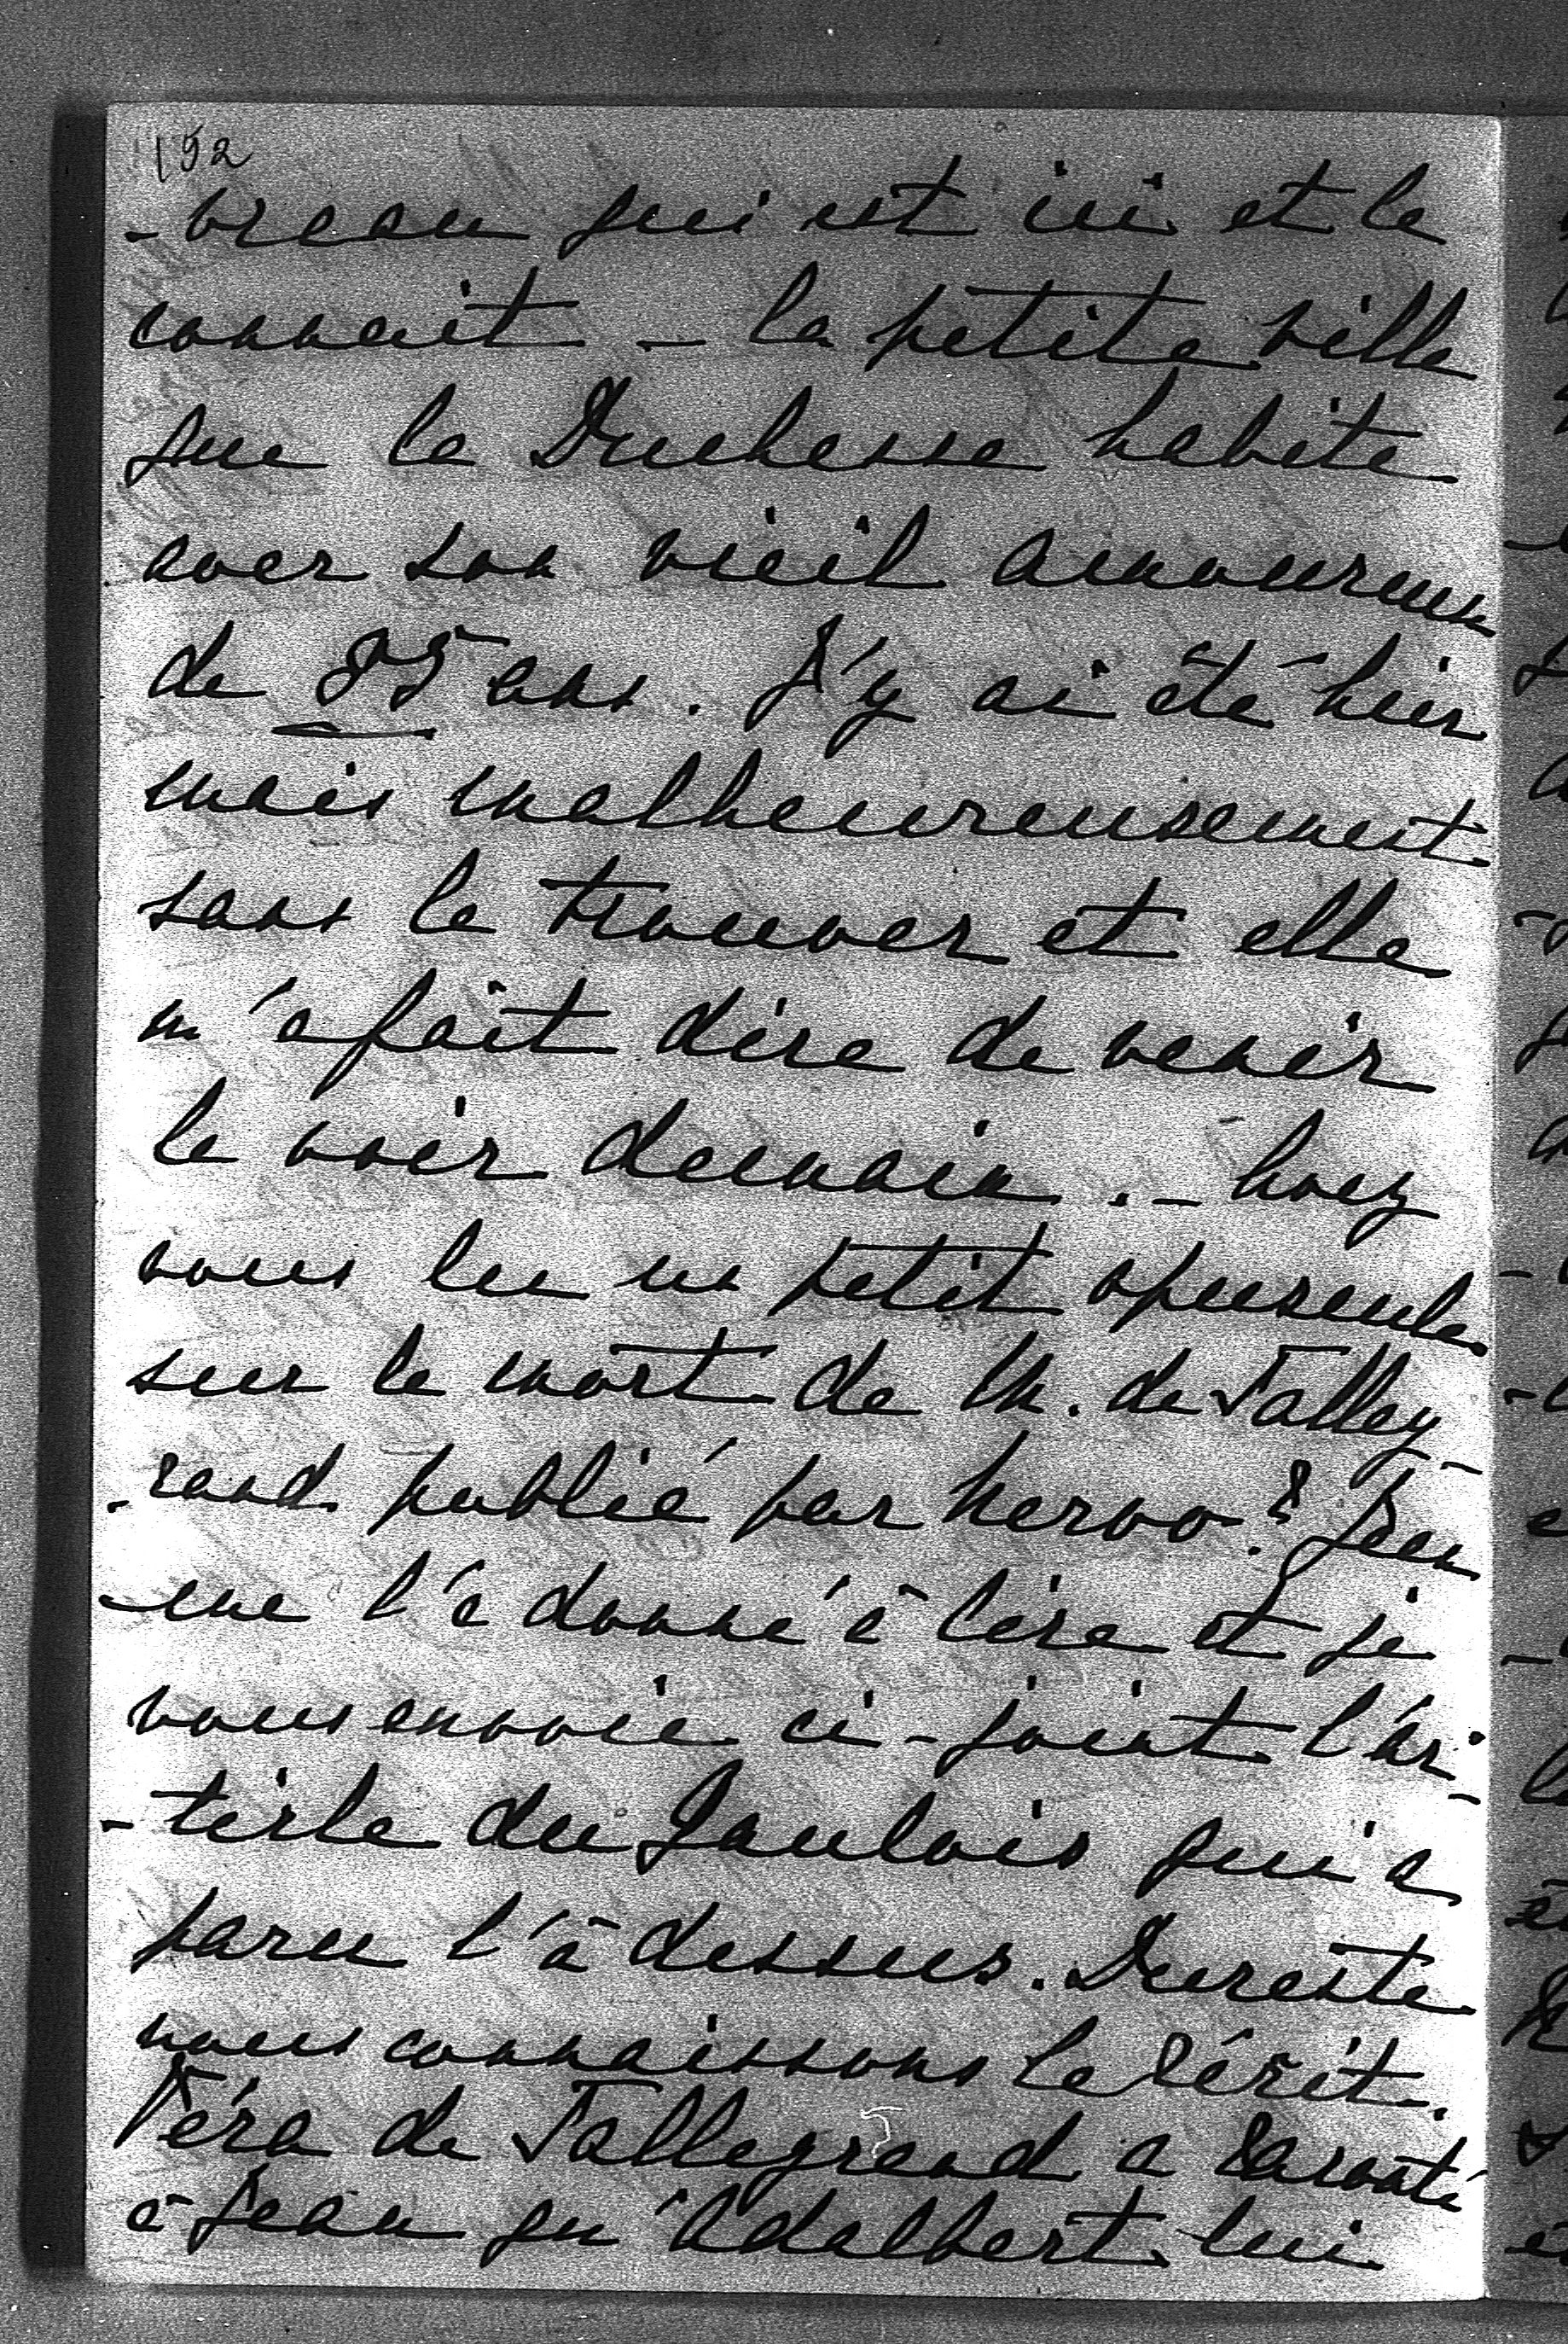 192
-breau qui est ici et le
connait - la petite ville
que la Duchesse habite
avec son vieil amoureux
de 85 ans. J'y ai été hier
mais malheureusement
sans la trouver et elle
m'a fait dire de venir
la voir demain. - Avez
vous lu un petit opuscule
sur la mort de M. de Talley-
-rand publié par Nervo? Jean
me l'a donné à lire et je
vous envoie ci-joint l'ar-
-ticle du Gaulois qui a
paru l'à dessus. Dureste
nous connaissons le récit.
Véra de Talleyrand a raconté
à Jean qu'Adalbert lui